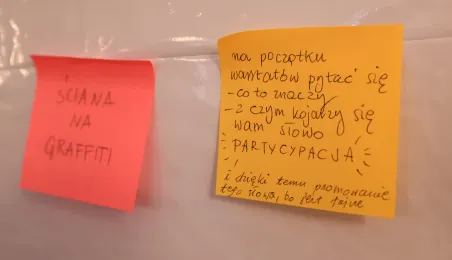 ŚCIANA
NA
GRAFFITI
na początku
warsztatów pytać się
- co to znaczy
- z czym kojarzy się
wam słowo
PARTYCYPACJA
i dzięki temu promowanie
tego słowa, bo jest fajne